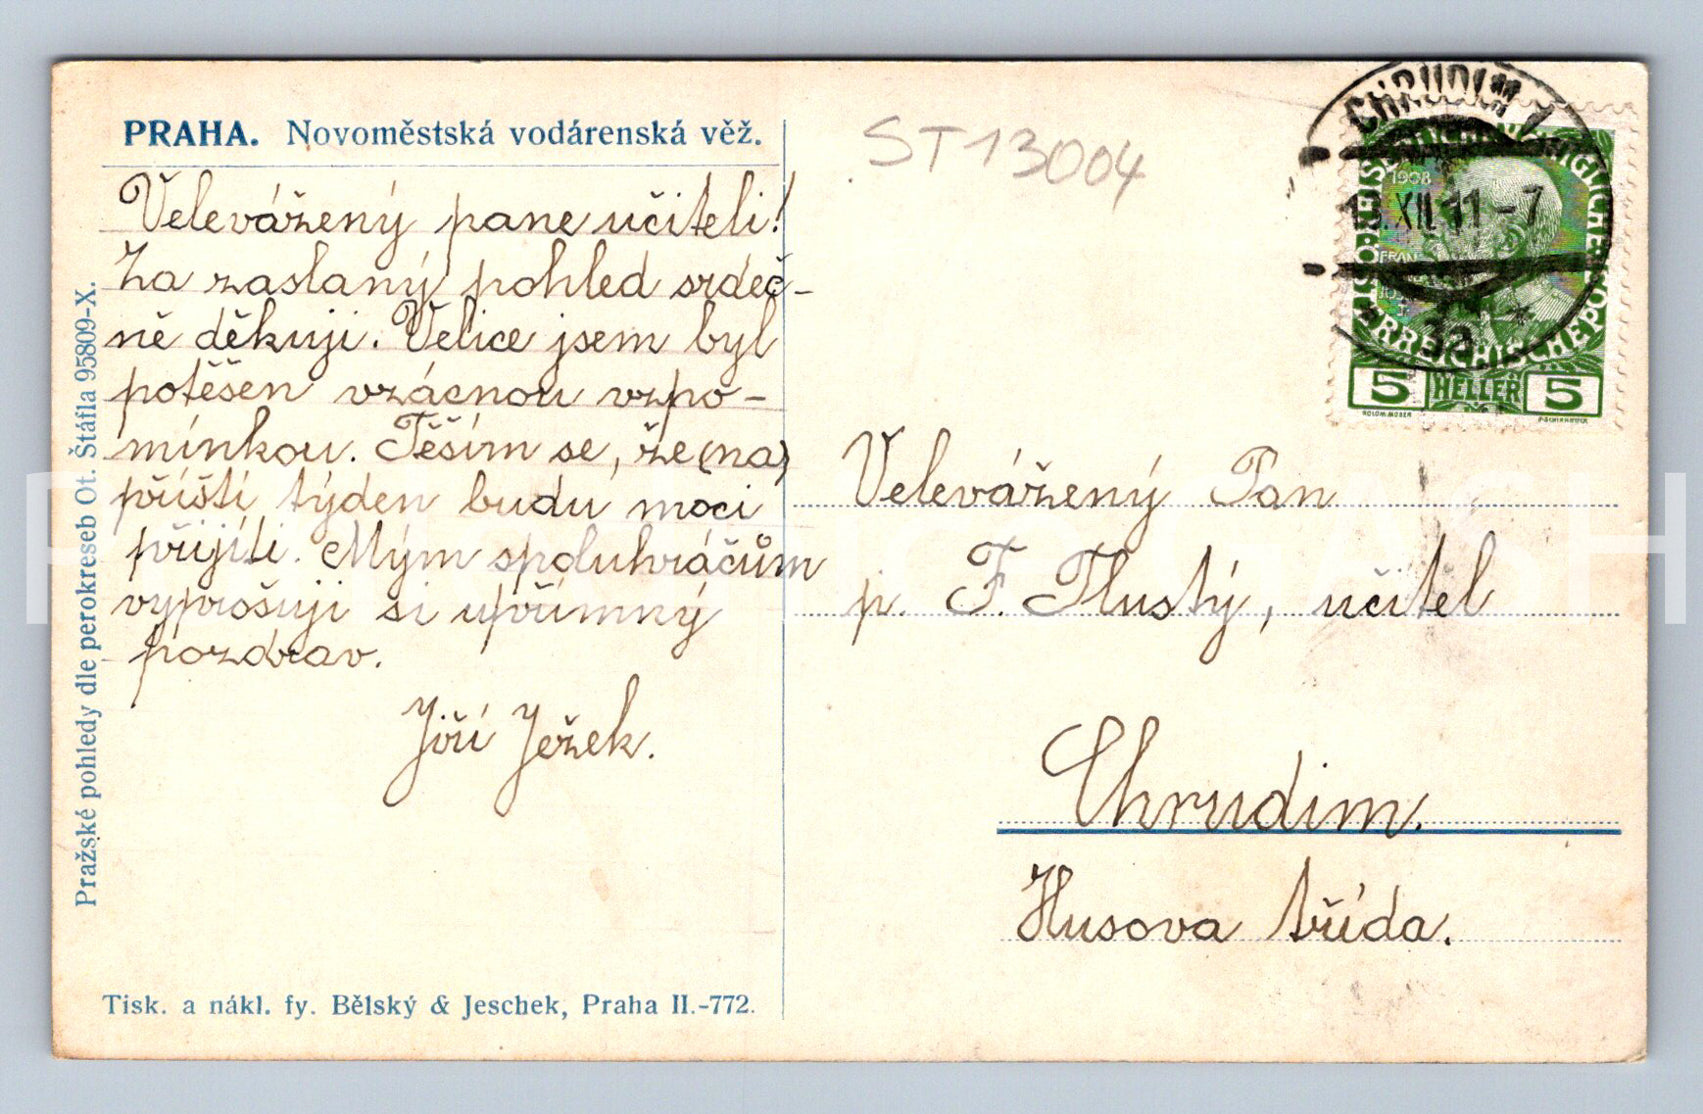 PRAHA. Novoměstská vodárenská věž.
Velevážený pane učiteli!
Za zaslaný pohled srdeč-
ně děkuji. Velice jsem byl
potěšen vzácnou vzpo-
mínkou. Těším se, že (na)
příští týden budu moci
přijíti. Mým spoluhráčům
vyprošuji si upřímný
pozdrav.
Jiří Ježek.
Pražské pohledy dle perokreseb Ot. Štáfla 95809-X.
Tisk. a nákl. fy. Bělský & Jeschek, Praha II.-772.
ST13004
CHRUDIM 1
XII 11 -7
3a
1908
5 HELLER 5
Velevážený Pan
p. F. Tlustý, učitel
Chrudim.
Husova třída.